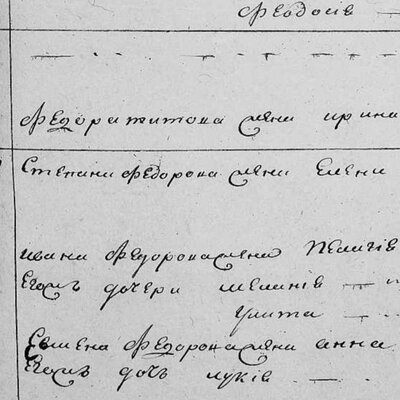 Феодосiѣ
Федора титова жена ирина
Степана Федорова жена Елена
ивана Федорова жена Пелагiѣ
Егожъ дочери меланiѣ
Улита
Семена Федорова жена анна
Егожъ дочь лукiѣ